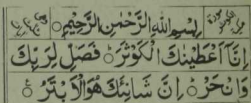 بِسْمِ اللهِ الرَّحْمٰنِ الرَّحِيْمِ
اِنَّاۤ اَعْطَيْنٰكَ الْكَوْثَرَ ۝ فَصَلِّ لِرَبِّكَ
وَانْحَرْ ۝ اِنَّ شَانِئَكَ هُوَ الْاَبْتَرُ ۝